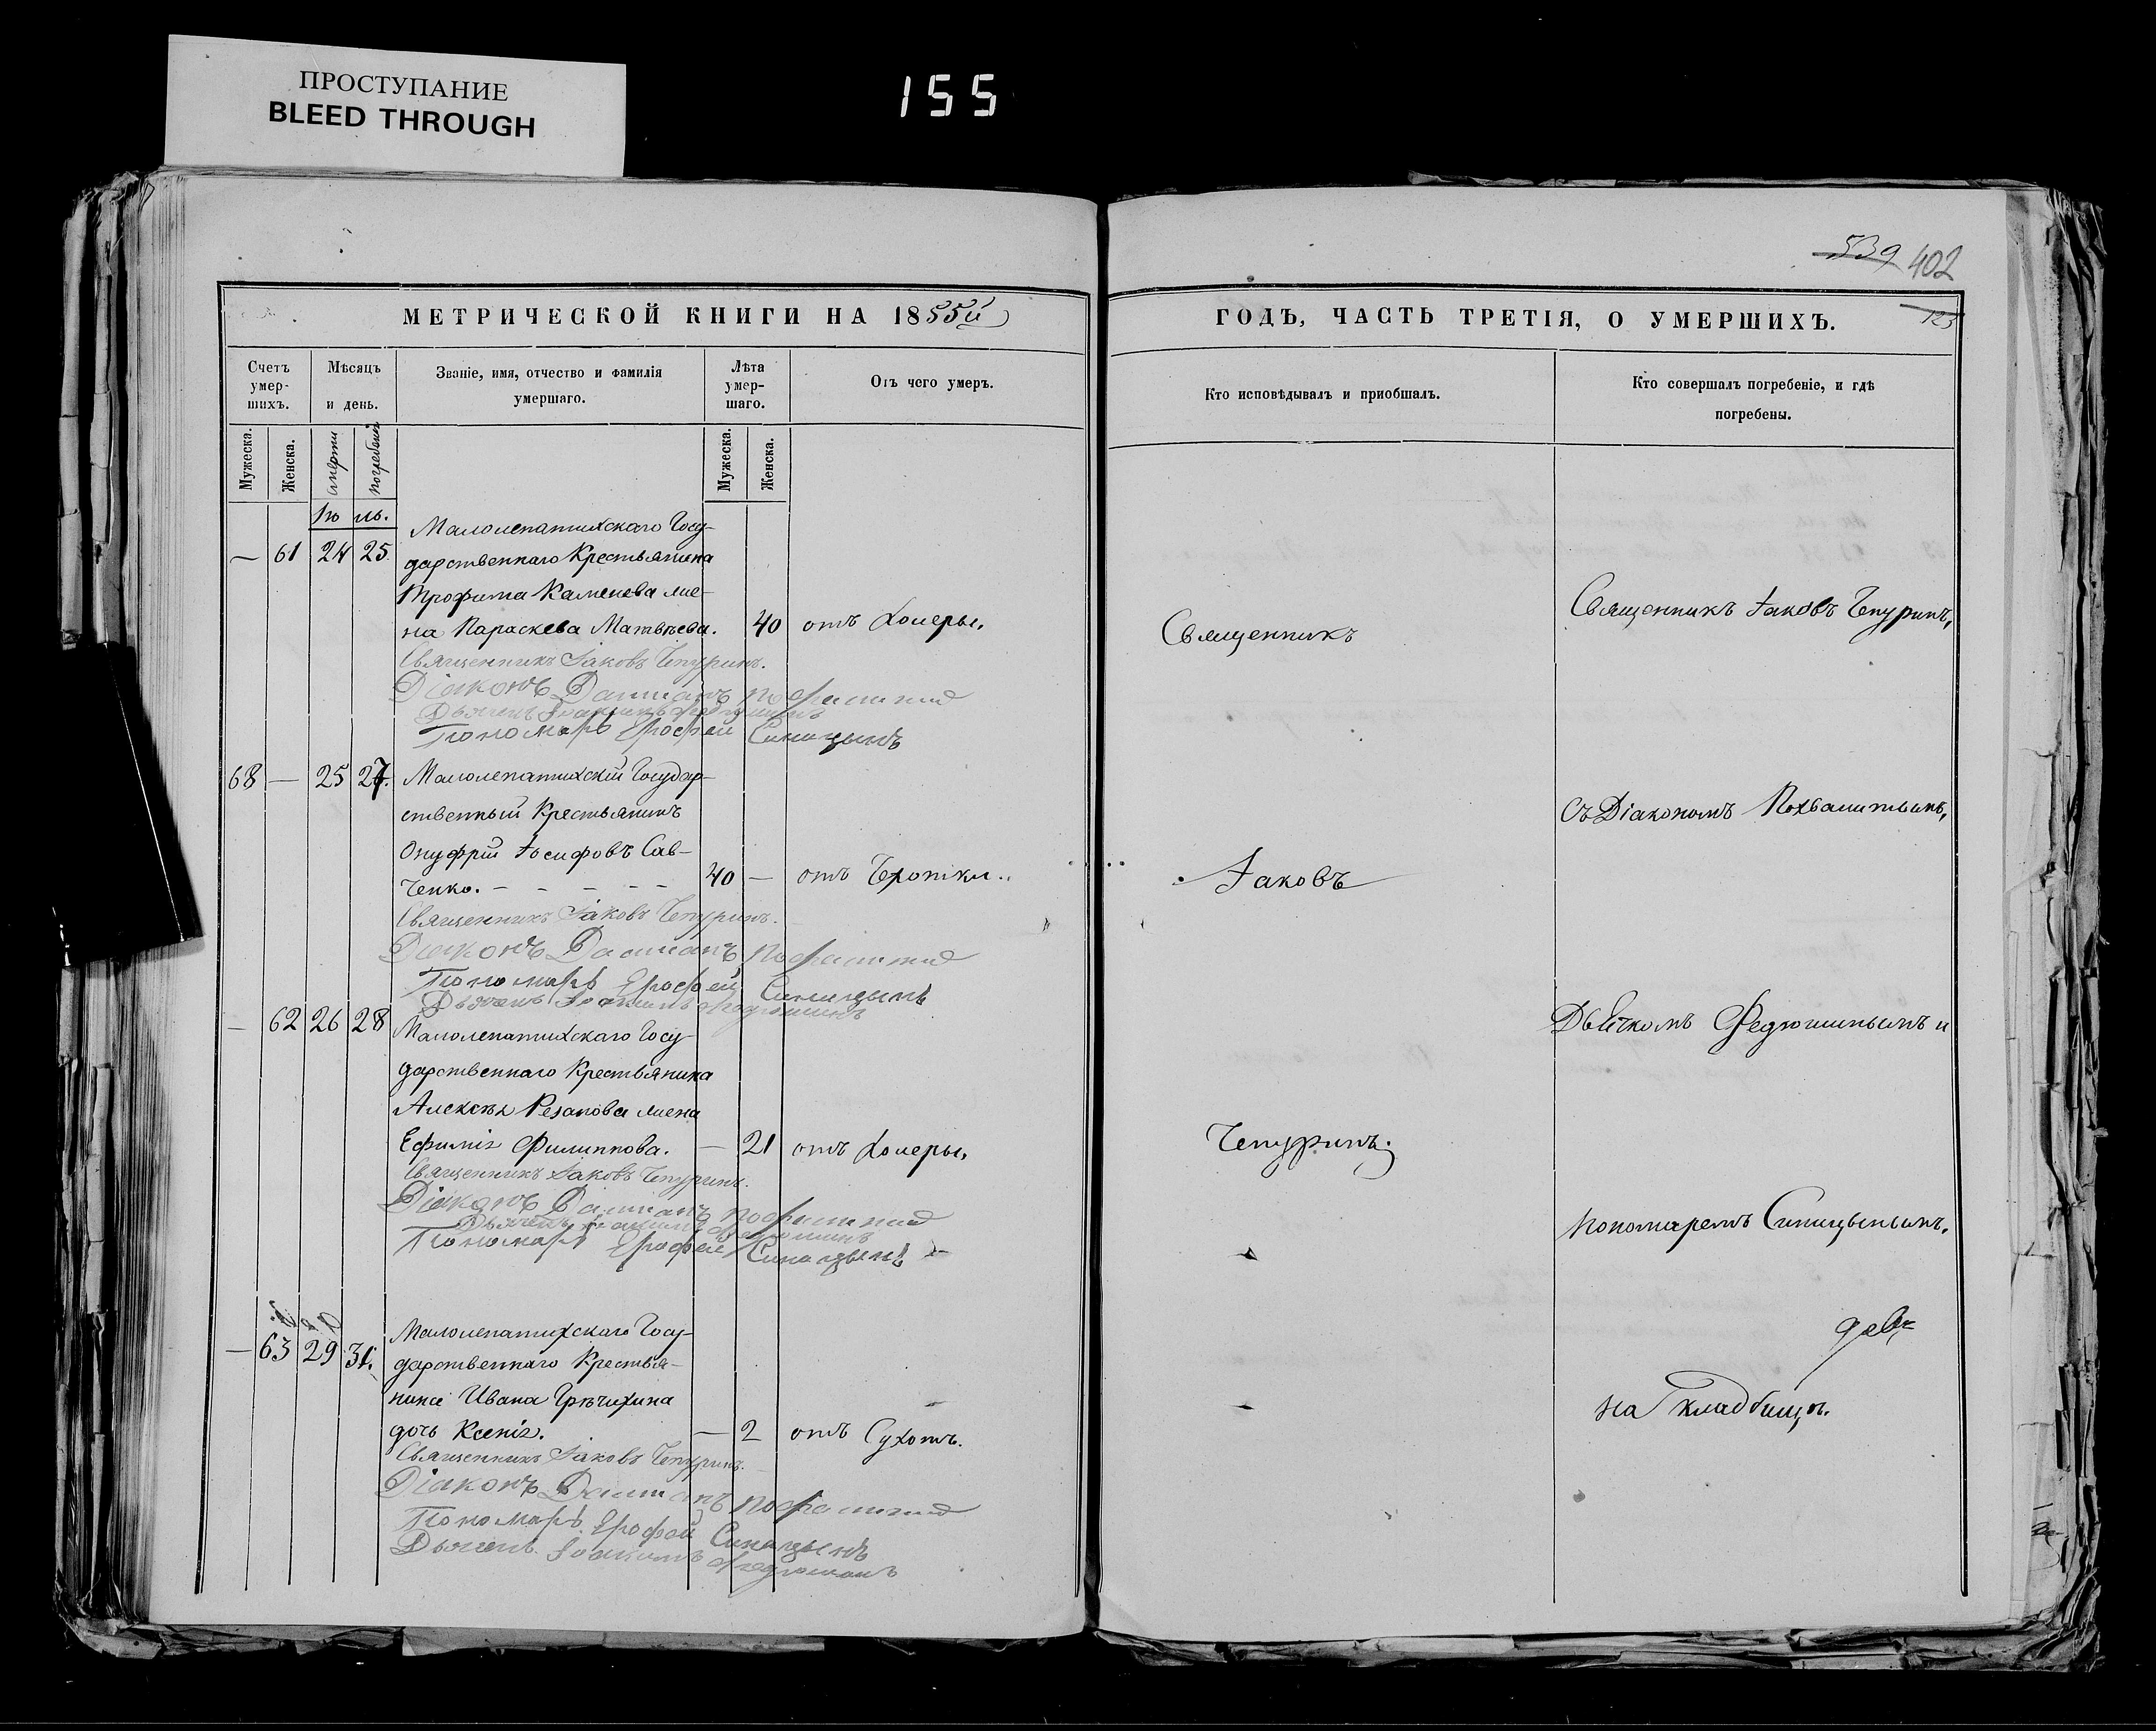 ПРОСТУПАНИЕ
BLEED THROUGH
155
МЕТРИЧЕСКОЙ КНИГИ НА 1855й
Счетъ умер-шихъ.
Мѣсяцъ и день.
Званіе, имя, отчество и фамилія умершаго.
Лѣта умер-шаго.
Отъ чего умеръ.
Мужеска.
Женска.
смерти
погребенія
Мужеска.
Женска.
Іюль.
Малолепатихскаго Госу-
— 61 24 25. дарственнаго Крестьянина
Трофима Каменева же-
на Параскева Матвѣева. 40 отъ Холеры.
Священникъ Іаковъ Чепуринъ.
Діаконъ Дамианъ
Дьячекъ Іоакимъ Федюшинъ
Пономарь Ерофей Синицынъ
68 — 25 27. Малолепатихскій Государ-
ственный Крестьянинъ
Онуфрій Іосифовъ Сав-
ченко. - - - - - 40 — отъ
Священникъ Іаковъ Чепуринъ.
Діаконъ Дамианъ
Пономарь Ерофей Синицынъ
Дьячекъ Іоакимъ Федюшинъ
— 62 26 28 Малолепатихскаго Госу-
дарственнаго Крестьянина
Алексѣя Резанова жена
Ефимія Филиппова. — 21 отъ Холеры.
Священникъ Іаковъ Чепуринъ.
Діаконъ Дамианъ
Дьячекъ Іоакимъ Федюшинъ
Пономарь Ерофей Синицынъ
— 63 29 31. Малолепатихскаго Госу-
дарственнаго Крестья-
нина Ивана Грѣчихина
дочь Ксенія. — 2 отъ Сухотъ.
Священникъ Іаковъ Чепуринъ.
Діаконъ Дамианъ
Пономарь Ерофей Синицынъ
Дьячекъ Іоакимъ Федюшинъ
539 402
123
ГОДЪ, ЧАСТЬ ТРЕТІЯ, О УМЕРШИХЪ.
Кто исповѣдывалъ и приобщалъ.
Кто совершалъ погребеніе, и гдѣ погребены.
Священникъ
Іаковъ
Чепуринъ.
Священникъ Іаковъ Чепуринъ,
съ Діакономъ Похвалитымъ,
Дьячкомъ Федюшинымъ и
Пономаремъ Синицынымъ.
на кладбищѣ.